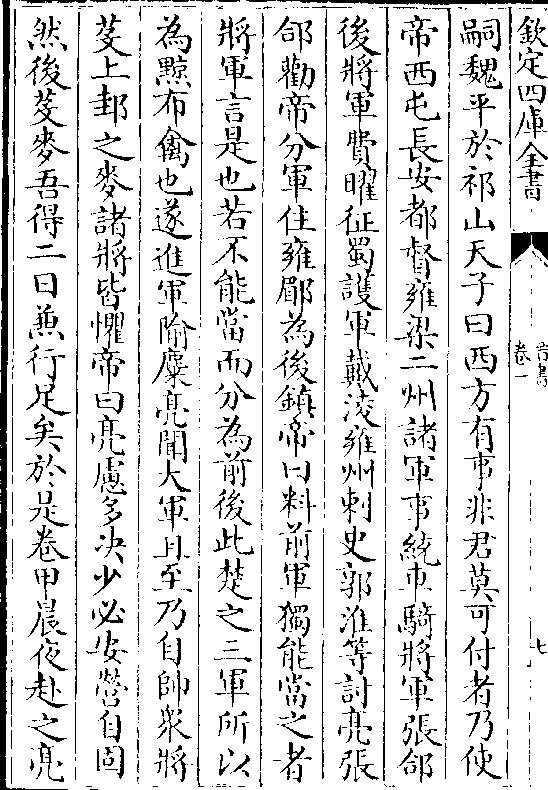 欽定四庫全書
晉書
卷一
七
嗣魏平於祁山天子曰西方有事非君莫可付者乃使
帝西屯長安都督雍梁二州諸軍事統車騎將軍張郃
後將軍費曜征蜀護軍戴淩雍州刺史郭淮等討亮張
郃勸帝分軍住雍郿為後鎮帝曰料前軍獨能當之者
將軍言是也若不能當而分為前後此楚之三軍所以
為黥布禽也遂進軍隃麋亮聞大軍且至乃自帥衆將
芟上邽之麥諸將皆懼帝曰亮慮多決少必安營自固
然後芟麥吾得二日兼行足矣於是卷甲晨夜赴之亮